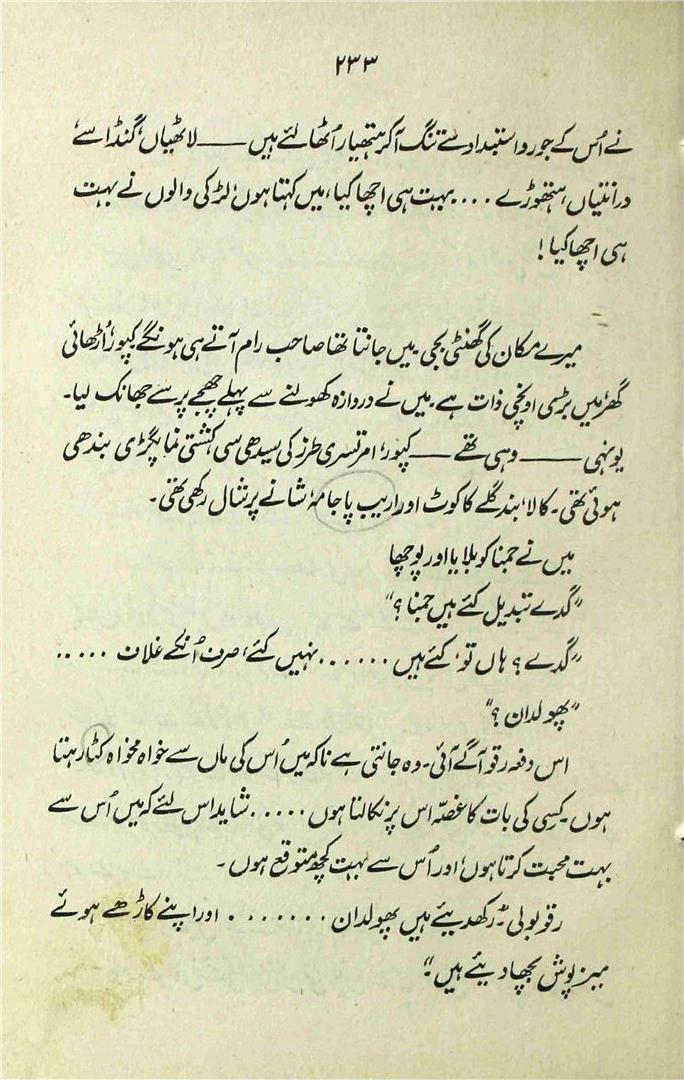 ۲۳۳
نے اُس کے جور و استبداد سے تنگ آکر ہتھیار اُٹھا لئے ہیں —— لاٹھیاں، گنڈاسے،
درانتیاں، ہتھوڑے .... بہت ہی اچھا کیا، میں کہتا ہوں، لڑکی والوں نے بہت
ہی اچھا کیا!
میرے مکان کی گھنٹی بجی۔ میں جانتا تھا صاحب رام آتے ہی ہونگے کپور، اُڑھائی
گھر، میں بڑی اونچی ذات ہے۔ میں نے دروازہ کھولنے سے پہلے چھجے پر سے جھانک لیا۔
یونہی —— وہی تھے —— کپور، امرتسری طرز کی سیدھی سی کشتی نما پگڑی بندھی
ہوئی تھی۔ کالا، بند گلے کا کوٹ اور اریب پاجامہ، شانے پر شال رکھی تھی۔
میں نے جمنا کو بلایا اور پوچھا
”گدے تبدیل کئے ہیں جمنا؟“
”گدے؟ ہاں تو، کئے ہیں ...... نہیں کئے، صرف اُنکے غلاف .....
”پھولدان؟“
اس دفعہ رقو آگے آئی۔ وہ جانتی ہے نا کہ میں اُس کی ماں سے خواہ مخواہ کٹا رہتا
ہوں۔ کسی کی بات کا غصّہ اس پر نکالتا ہوں ..... شاید اس لئے کہ میں اُس سے
بہت محبت کرتا ہوں، اور اُس سے بہت کچھ متوقع ہوں۔
رقو بولی۔ ”رکھدیئے ہیں پھولدان ....... اور اپنے کاڑھے ہوئے
میز پوش بچھا دیئے ہیں۔“